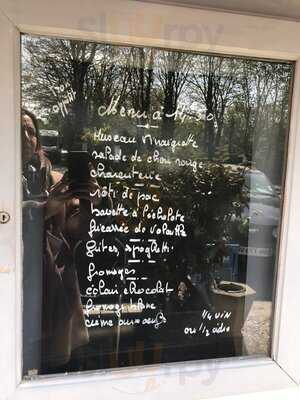 Menu à 14,50
Museau Vinaigrette
salade de chou rouge
charcuterie
rôti de porc
bavette à l'échalote
fricassée de volaille
frites, spaghetti
fromages
éclair chocolat
fromage blanc
creme aux oeufs
1/4 vin
ou 1/2 cidre